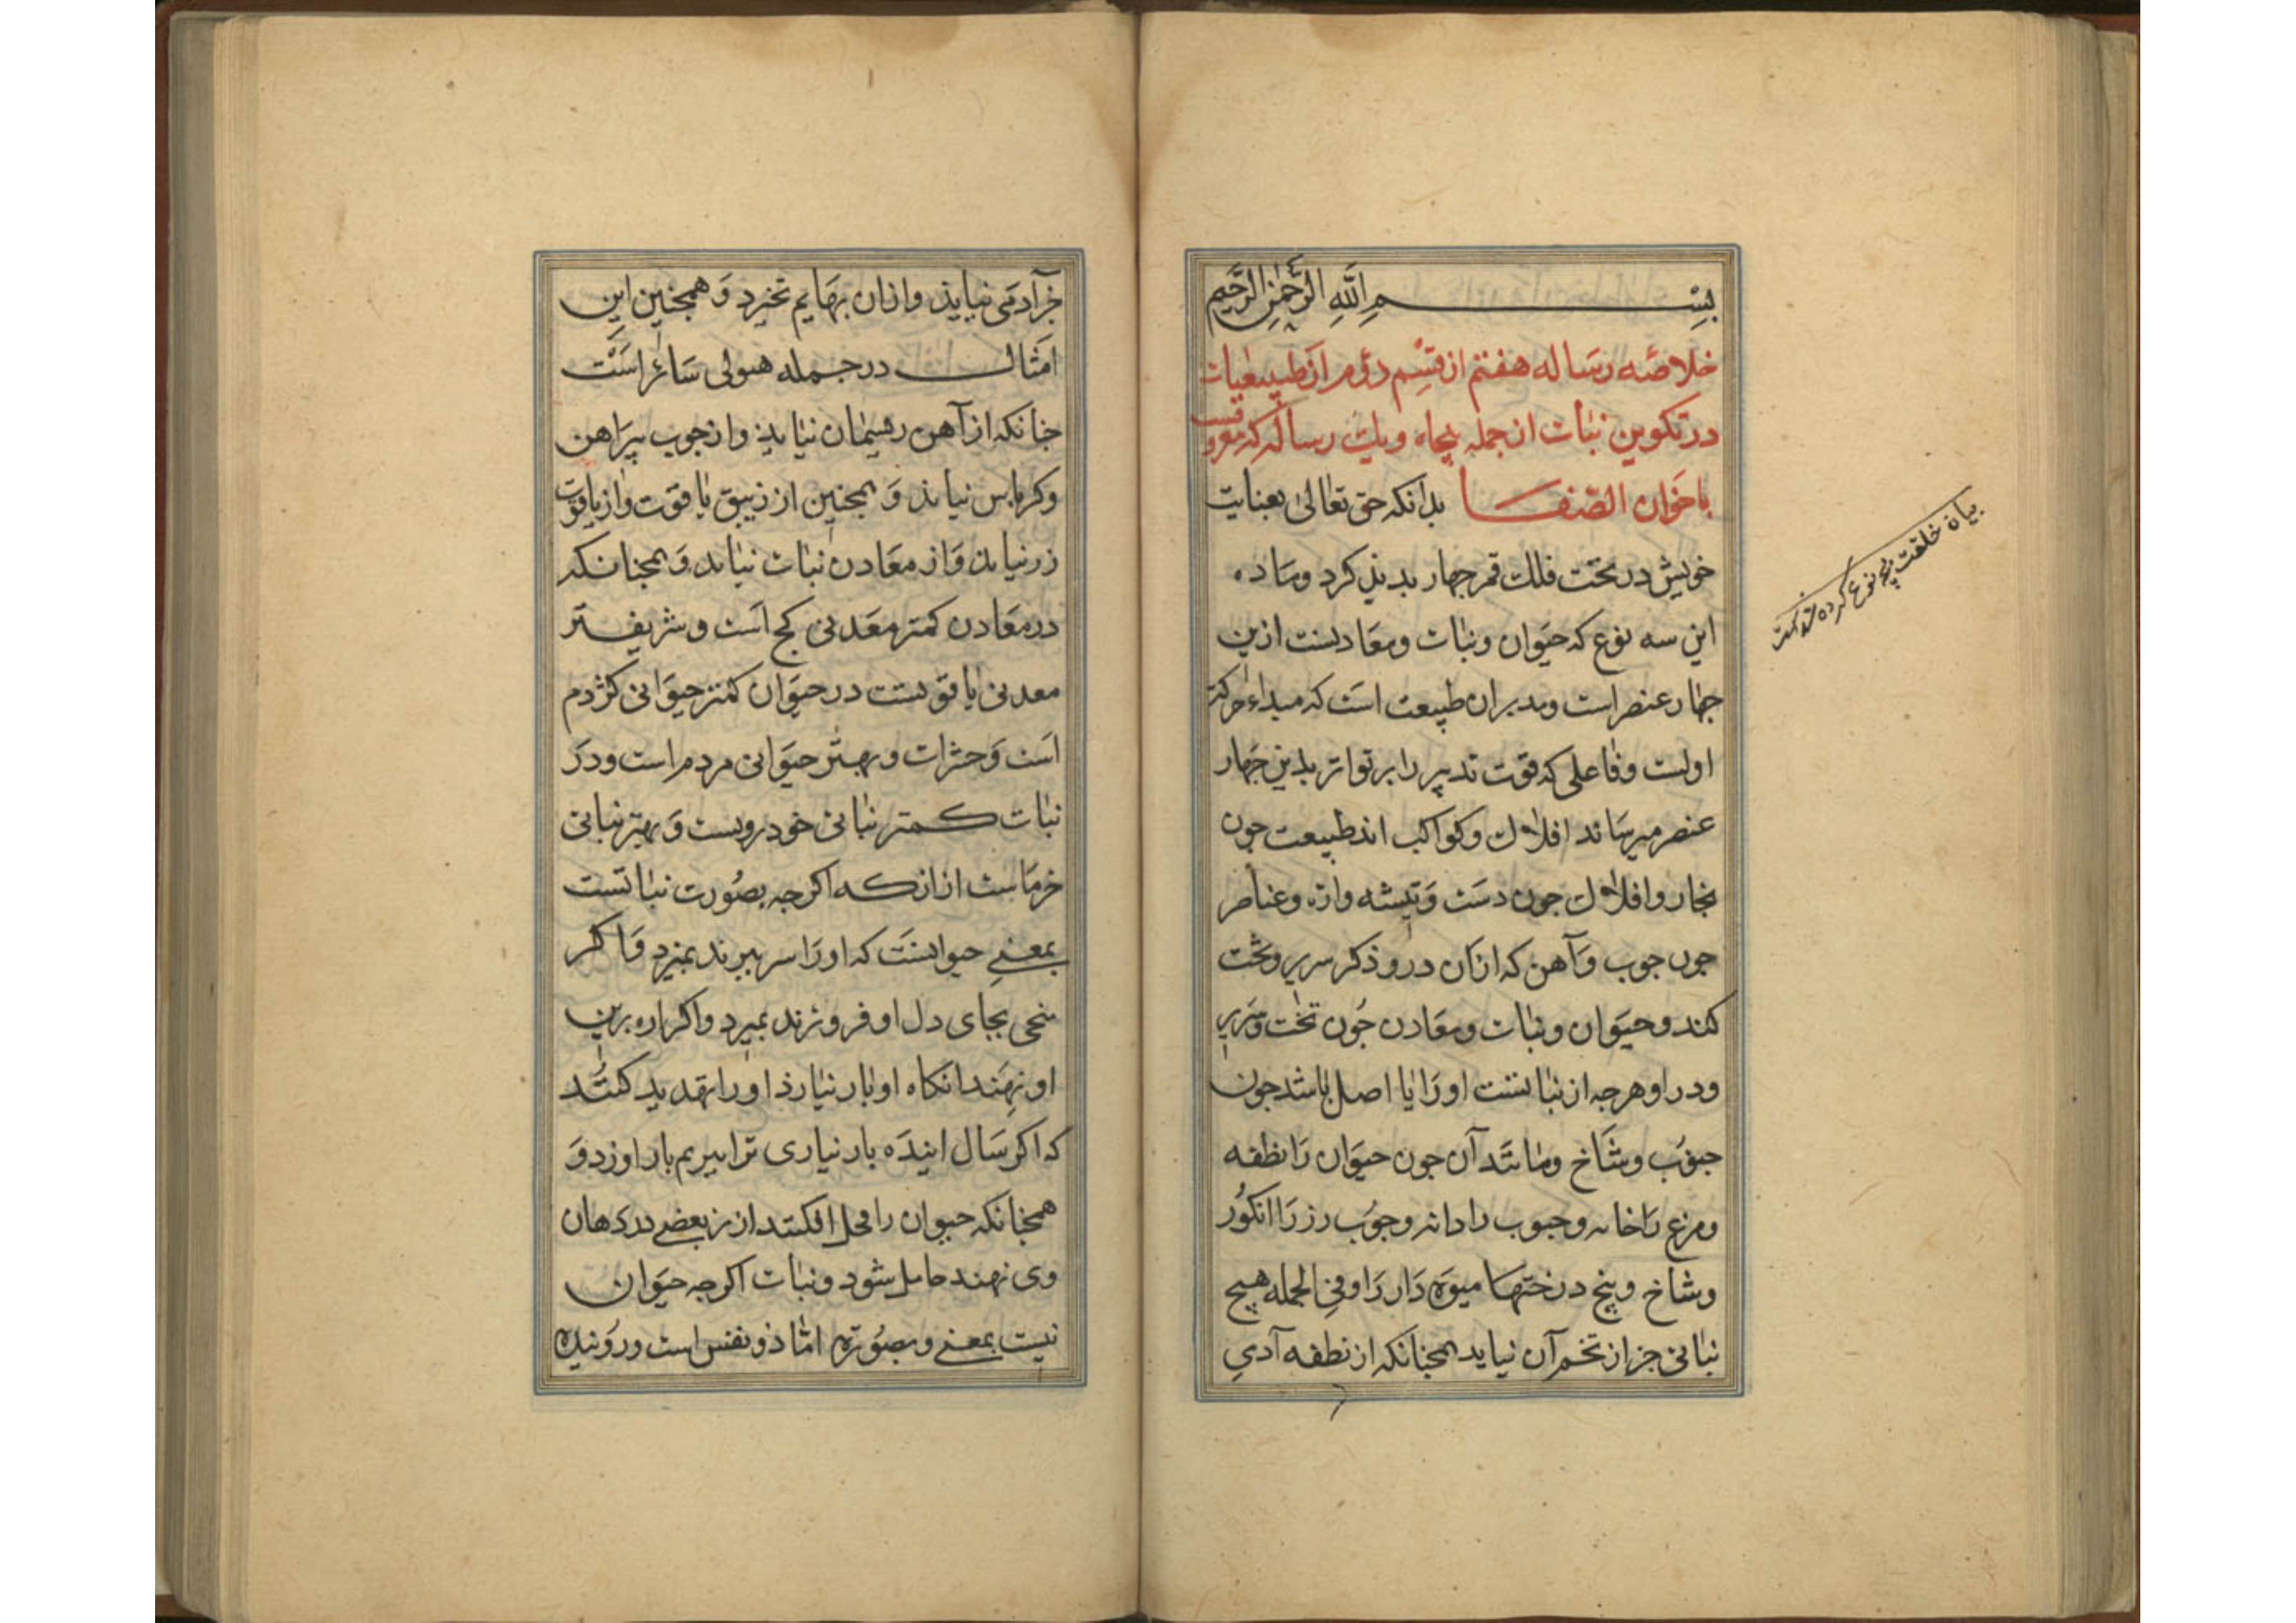 بسم الله الرحمن الرحیم
خلاصه رساله هفتم از قسم دوم از طبیعیات
در تکوین نبات از جمله پنجاه و یک رساله که معروفست
باخوان الصفا بدانکه حق تعالی بعنایت
خویش در تحت فلک قمر چهار پدیذ کرد و ماده
این سه نوع که حیوان و نبات و معادنست ازین
جهار عنصر است و مدبر ان طبیعت است که مبداء حرکت
اولست و فاعلی که قوت تدبیر را بر تواتر بدین جهار
عنصر میرساند افلاک و کواکب اند طبیعت جون
نجار و افلاک جون دست و تیشه و اره و عناصر
جون جوب و آهن که ازان دروذکر سریر و تخت
کند و حیوان و نبات و معادن جون تخت و سریر
ودراو هرجه از نباتست او را یا اصل باشد جون
جوب و شاخ و مانند آن جون حیوان را نطفه
و مرغ را خایه و حبوب را دانه و جوب رز را انکور
و شاخ و بیخ درختها میوه دار را و فی الجمله هیج
نباتی جز از تخم آن نیاید همجنانکه از نطفه آدمی
جز آدمی نیاید و ازان بهایم نخیزد و همجنین این
امثال در جمله هیولی سائر است
جنانکه از آهن ریسمان نیاید و از جوب پیراهن
و کرباس نیاید و همجنین از زیبق یاقوت و از یاقوت
زر نیاید و از معادن نبات نیاید و همجنانکه
در معادن کمتر معدنی کج است و شریفتر
معدنی یاقوتست در حیوان کمتر حیوانی کژدم
است و حشرات و بهتر حیوانی مردم است و در
نبات کمتر نباتی خودرویست و بهتر نباتی
خرماست ازانکه اکرجه بصورت نباتست
بمعنی حیوانست که او را سر ببرند بمیرد و اکر
میخی بجای دل او فرو زنند بمیرد و اکر اره برین
او نهند انکاه او بار نیارد او را تهدید کنند
که اکر سال اینده بار نیاری ترا ببریم بار اورد و
همجنانکه حیوان را فحل افکند از نر بعضی در دهان
وی نهند حامل شود و نبات اکرجه حیوان
نیست بمعنی و بصورت اما ذو نفس است و روئیده
بیان خلقت نوع کرده